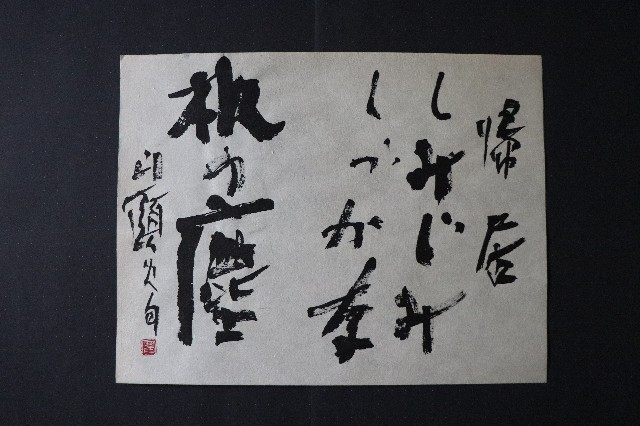 帰居
しみじみ
しづかな
机の塵
山頭火